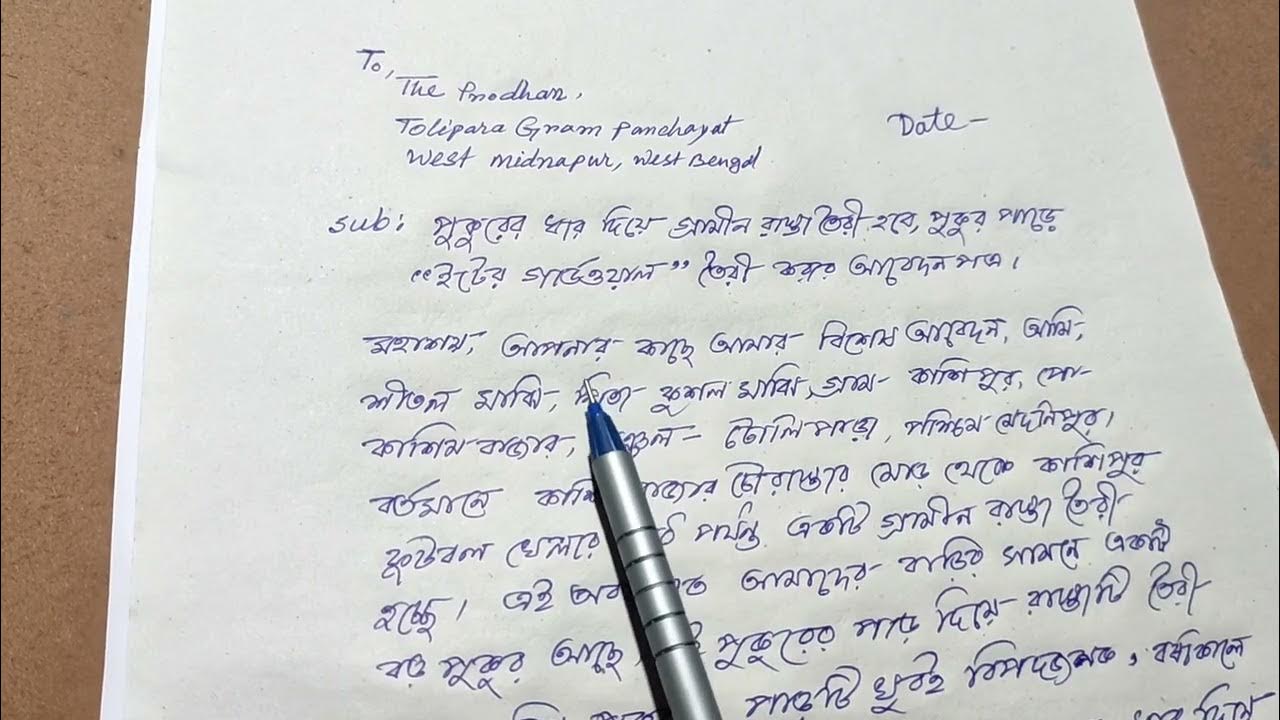 To,
The Prodhan,
Tolipara Gram Panchayat
West Midnapur, West Bengal
Date-
Sub: পুকুরের ধার দিয়ে গ্রামীন রাস্তা তৈরী হবে, পুকুর পাড়ে
"ইটের গার্ডওয়াল" তৈরী করার আবেদন পত্র।
মহাশয়, আপনার কাছে আমার বিশেষ আবেদন, আমি,
শীতল মাঝি, কুশল মাঝি, গ্রাম- কাশিপুর, পো-
কাশিমবাজার, টোলিপাড়া, পশ্চিম মেদীনিপুর।
বর্তমানে চৌরাস্তার মোড় থেকে কাশিপুর
ফুটবল খেলার পর্যন্ত একটি গ্রামীন রাস্তা তৈরী
হচ্ছে। এই আমাদের বাড়ির সামনে একটি
বড় পুকুর আছে, পুকুরের পাড় দিয়ে রাস্তাটি তৈরী
পাড়টি খুবই বিপদজনক, বর্ষাকালে